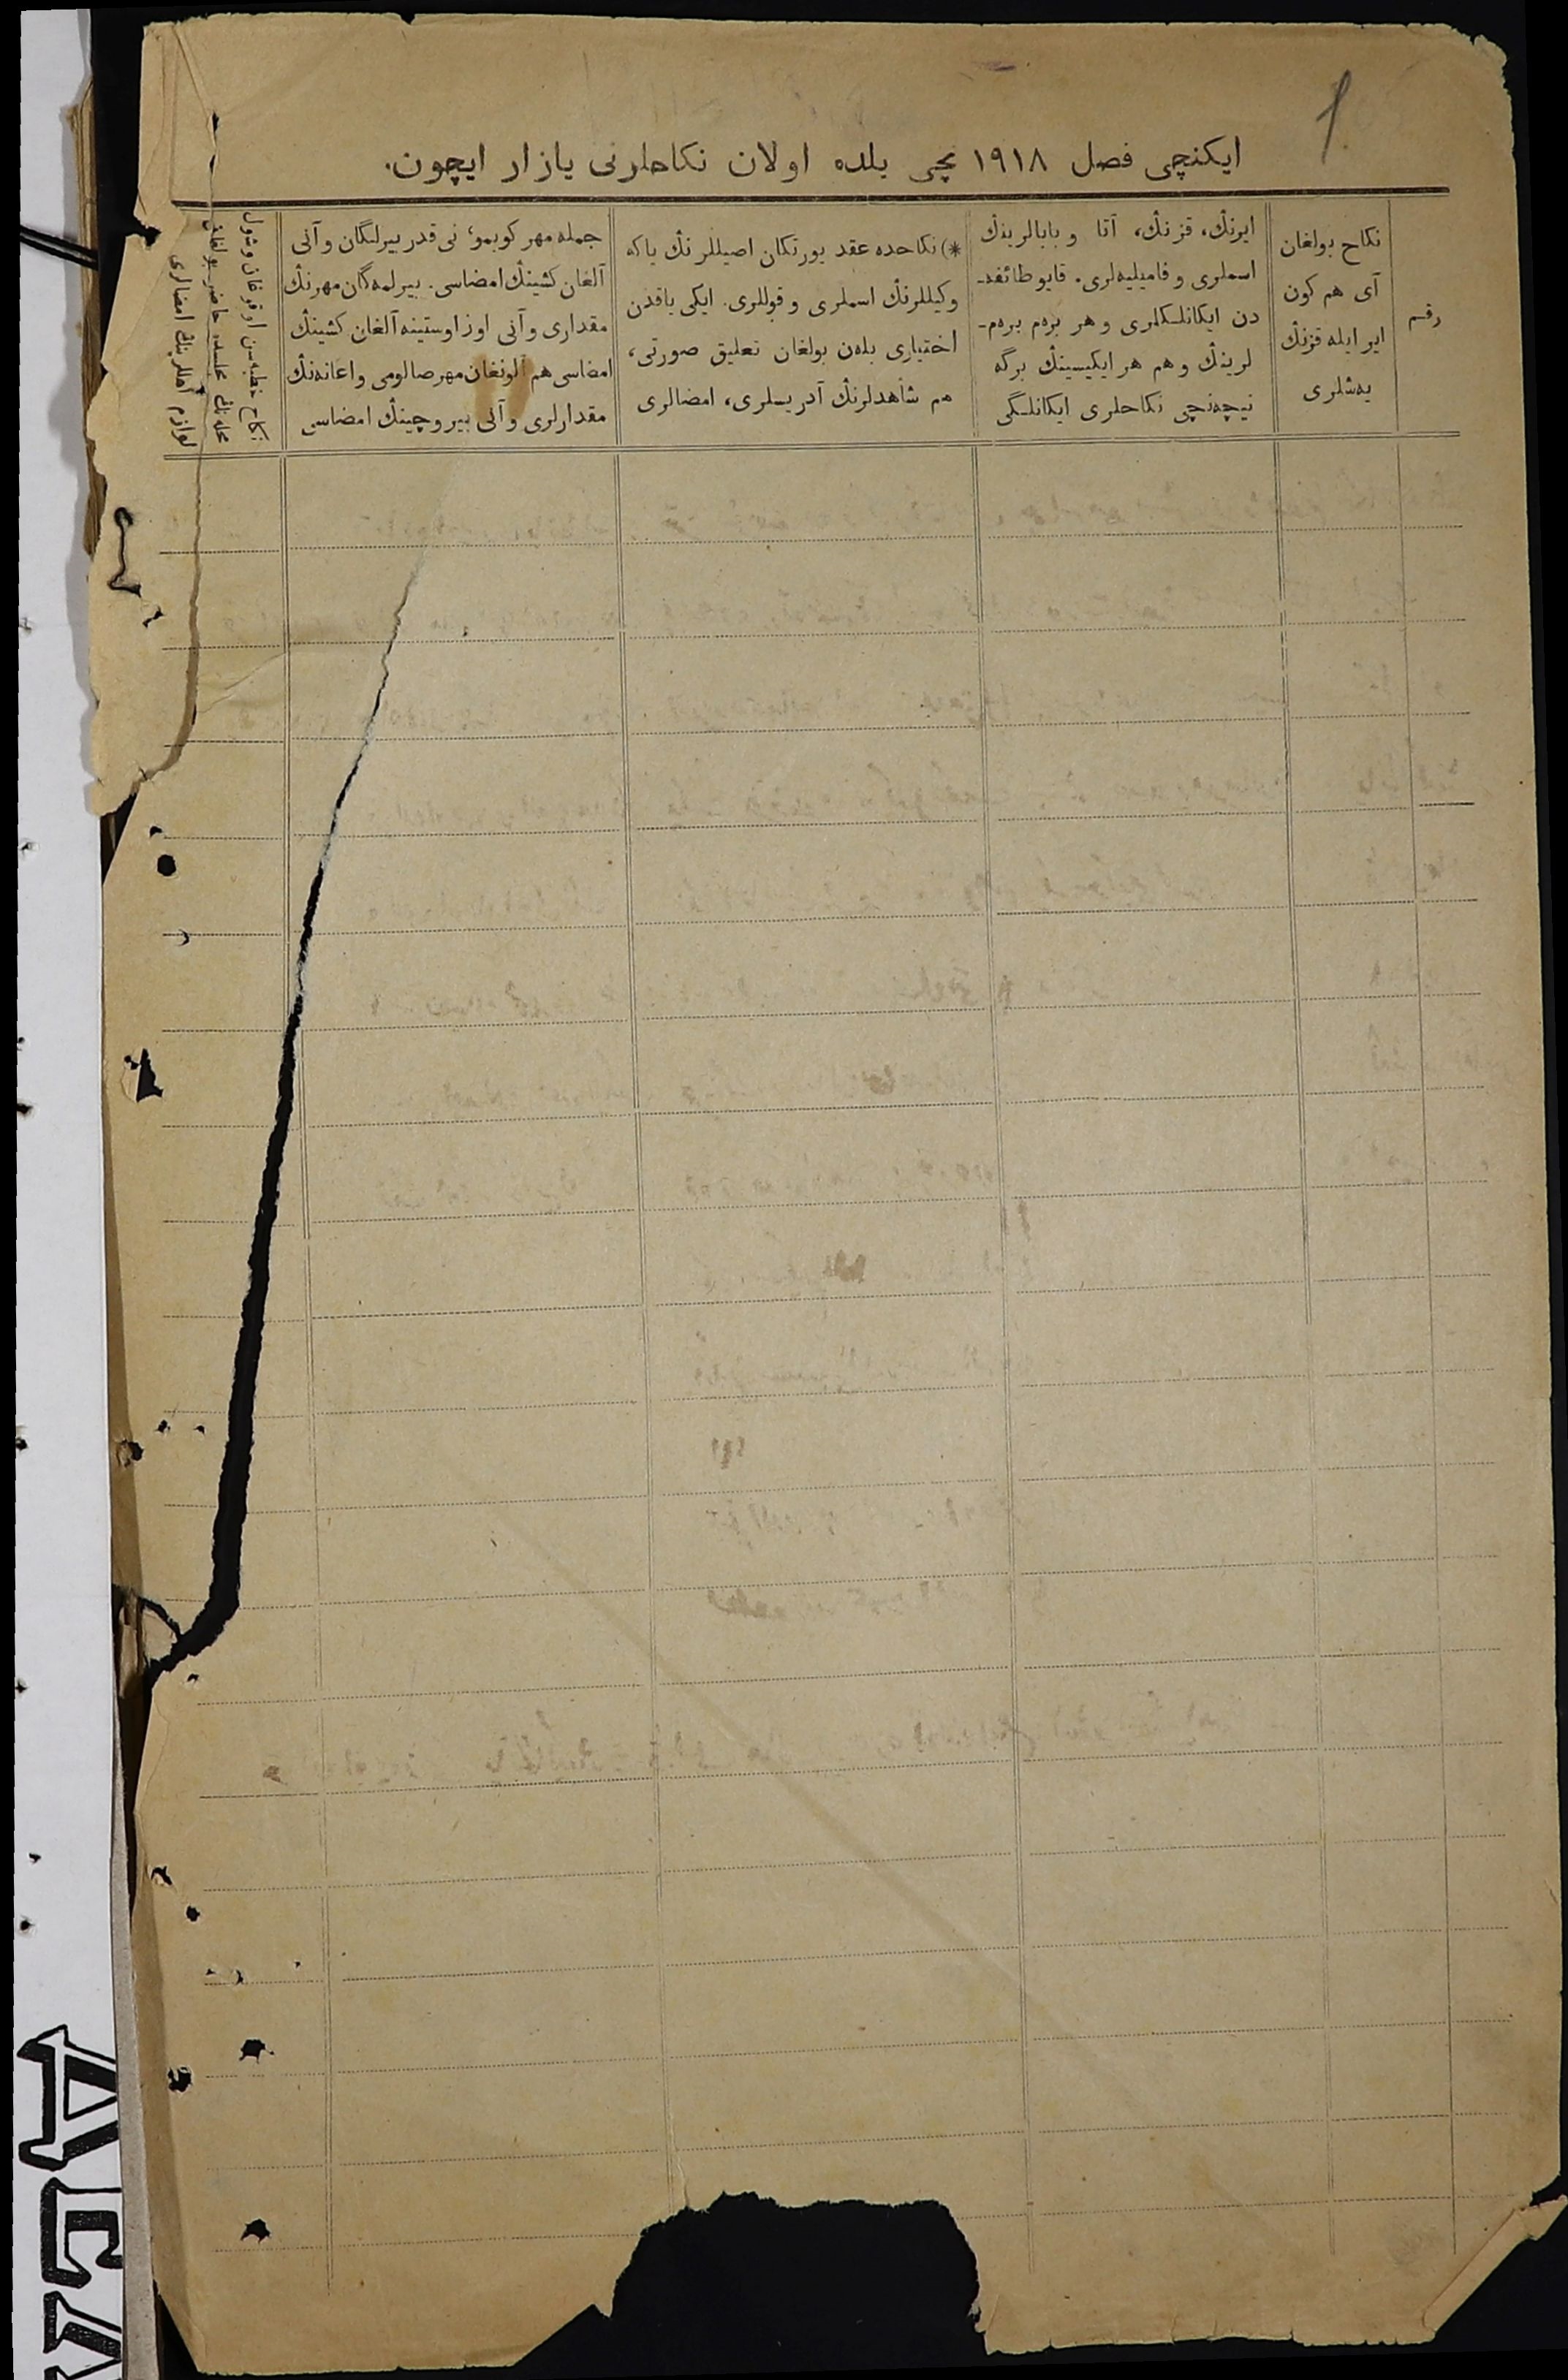 1
ایکنچی فصل ١٩١٨ نچی یلده اولان نکاحلرنی یازار ایچون.
رقم
نکاح بولغان
آی هم کون
ایر ایله قزنڭ
یەشلری
ایرنڭ، قزنڭ، آتا و بابالرینڭ
اسملری و فامیلیەلری. قایو طائفه‌ـ
دن ایکانلکلری و هر برەم برەم‌ـ
لرینڭ و هم هر ایکیسینڭ برگه
نیچەنچی نکاحلری ایکانلگی
*) نکاحده عقد یورتکان اصیللرنڭ یاکه
وکیللرنڭ اسملری و قوللری. ایکی یاقدن
اختیاری بلەن بولغان تعلیق صورتی،
هم شاهدلرنڭ آدریسلری، امضالری
جمله مهر کوبمو، نی قدر بیرلگان و آنی
آلغان کشینڭ امضاسی. بیرلمەگان مهرنڭ
مقداری و آنی اوز اوستینه آلغان کشینڭ
امضاسی هم آلونغان مهر صالومی و اعانەنڭ
مقدارلری و آنی بیروچینڭ امضاسی
نکاح خطبەسن اوقوغان و شول
محلەنڭ مجلسده حاضر بولغان
لوازم اهللرینڭ امضالری